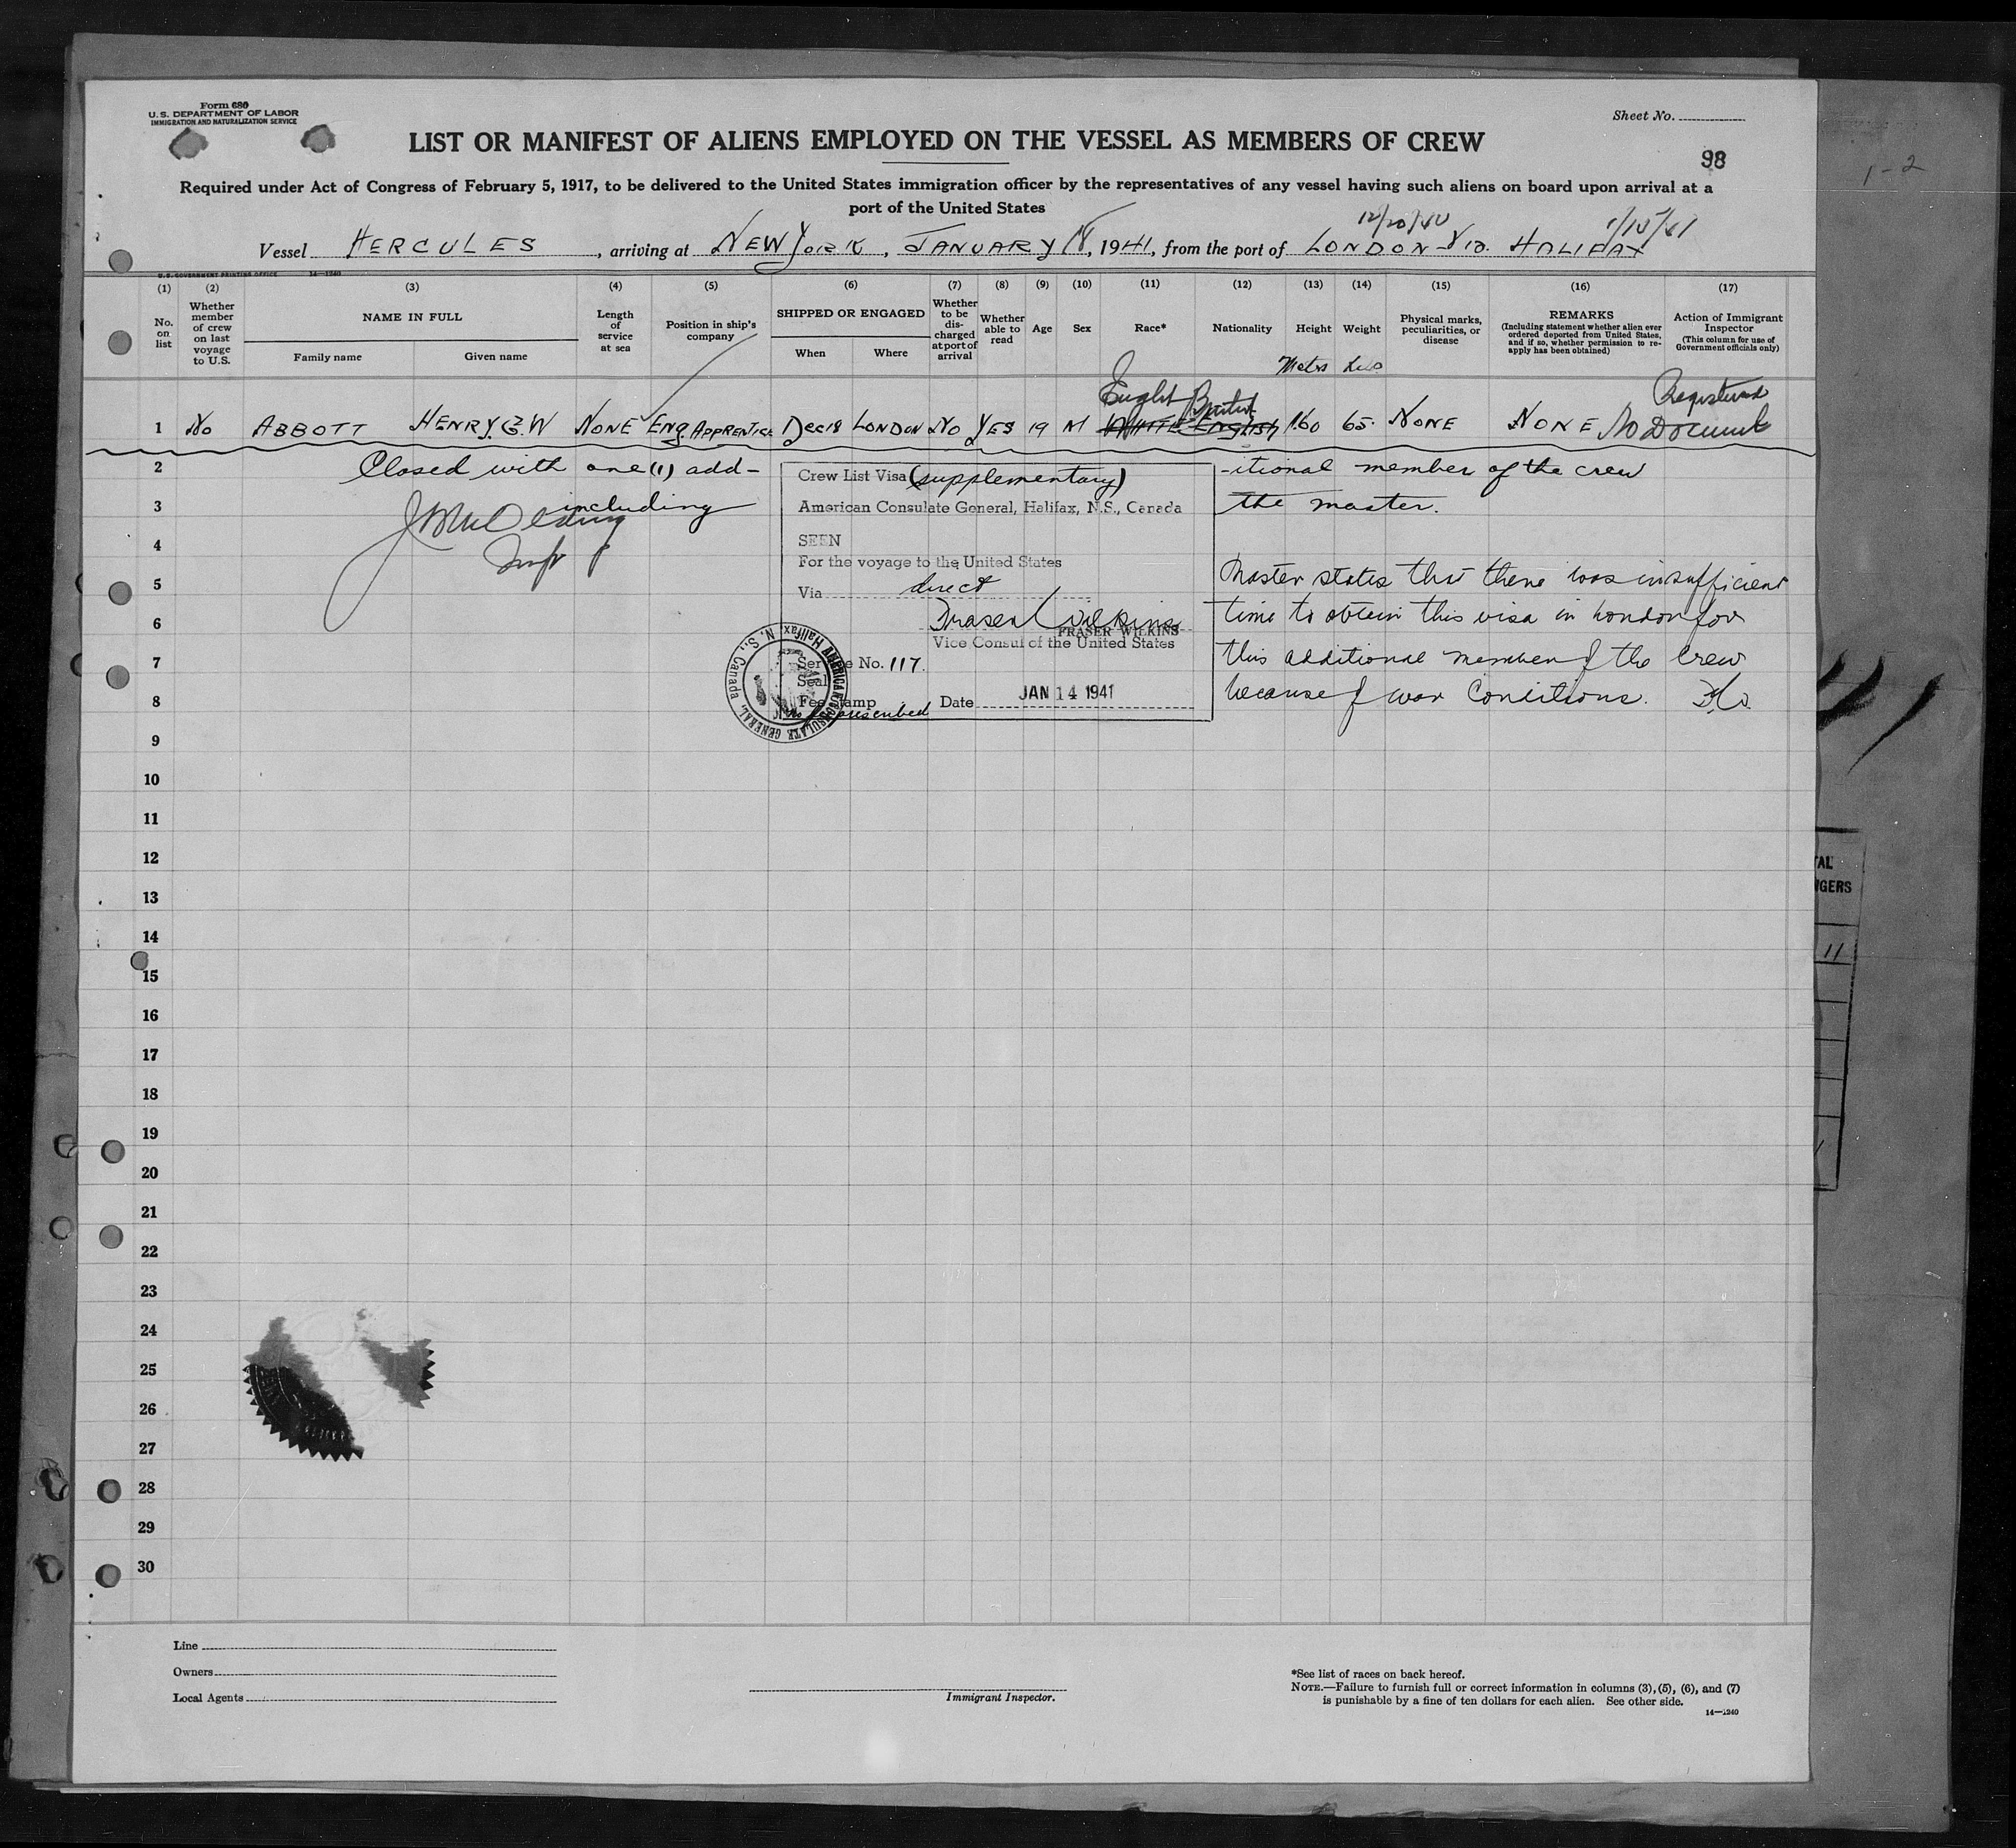 Form 680
U.S. DEPARTMENT OF LABOR
IMMIGRATION AND NATURALIZATION SERVICE
Sheet No.
LIST OR MANIFEST OF ALIENS EMPLOYED ON THE VESSEL AS MEMBERS OF CREW
98
1-2
Required under Act of Congress of February 5, 1917, to be delivered to the United States immigration officer by the representatives of any vessel having such aliens on board upon arrival at a
port of the United States
12/20/40 1/15/41
Vessel HERCULES, arriving at NEW YORK, JANUARY 18, 1941, from the port of LONDON Via. HALIFAX
U.S. GOVERNMENT PRINTING OFFICE 14—1240
(1) (2) (3) (4) (5) (6) (7) (8) (9) (10) (11) (12) (13) (14) (15) (16) (17)
No. on list
Whether member of crew on last voyage to U.S.
NAME IN FULL
Family name Given name
Length of service at sea
Position in ship's company
SHIPPED OR ENGAGED
When Where
Whether to be discharged at port of arrival
Whether able to read
Age
Sex
Race*
Nationality
Height
Weight
Physical marks, peculiarities, or disease
REMARKS
(Including statement whether alien ever ordered deported from United States, and if so, whether permission to reapply has been obtained)
Action of Immigrant Inspector
(This column for use of Government officials only)
Registered
1 No ABBOTT HENRY G.W NONE ENG. APPRENTICE Dec 18 LONDON No YES 19 M WHITE ENGLISH 1.60 65. NONE NONE No Document
British
2 Closed with one (1) add- -itional member of the crew
3 including the master.
Crew List Visa (supplementary)
American Consulate General, Halifax, N.S., Canada
SEEN
For the voyage to the United States
Via direct
Fraser Wilkins
FRASER WILKINS
Vice Consul of the United States
Service No. 117.
Seal
Fee Stamp
No fee prescribed
Date JAN 14 1941
AMERICAN CONSULATE GENERAL, Halifax, N. S., Canada
Master states that there was insufficient
time to obtain this visa in London for
this additional member of the crew
because of war conditions.
4
5
6
7
8
9
10
11
12
13
14
15
16
17
18
19
20
21
22
23
24
25
26
27
28
29
30
11
Line
Owners
Local Agents
Immigrant Inspector.
*See list of races on back hereof.
NOTE.—Failure to furnish full or correct information in columns (3), (5), (6), and (7)
is punishable by a fine of ten dollars for each alien. See other side.
14—1240